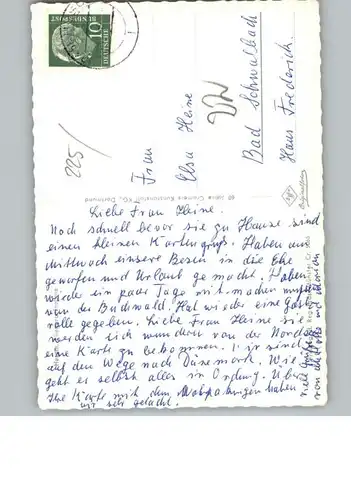 10
DEUTSCHE
BUNDESPOST
225/
Frau
Elsa Heine
Bad Schwalbach
Haus Frederich.
60 Jahre Cramers Kunstanstalt KG., Dortmund
Liebe Frau Heine.
Noch schnell bevor sie zu Hause sind
einen kleinen Kartengruß. Haben am
Mittwoch unsere Besen in die Ecke
geworfen und Urlaub gemacht. Haben
wieder ein paar Tage mitmachen müssen
von der Buchwald. Hat wieder eine Gast
rolle gegeben. Liebe Frau Heine sie
werden sich wundern von der Nordsee
eine Karte zu bekommen. Wir sind
auf dem Wege nach Dänemark. Wie
geht es selbst alles in Ordnung. Über
Ihre Karte mit den haben
wir sehr gelacht.
viele Grüße
von und